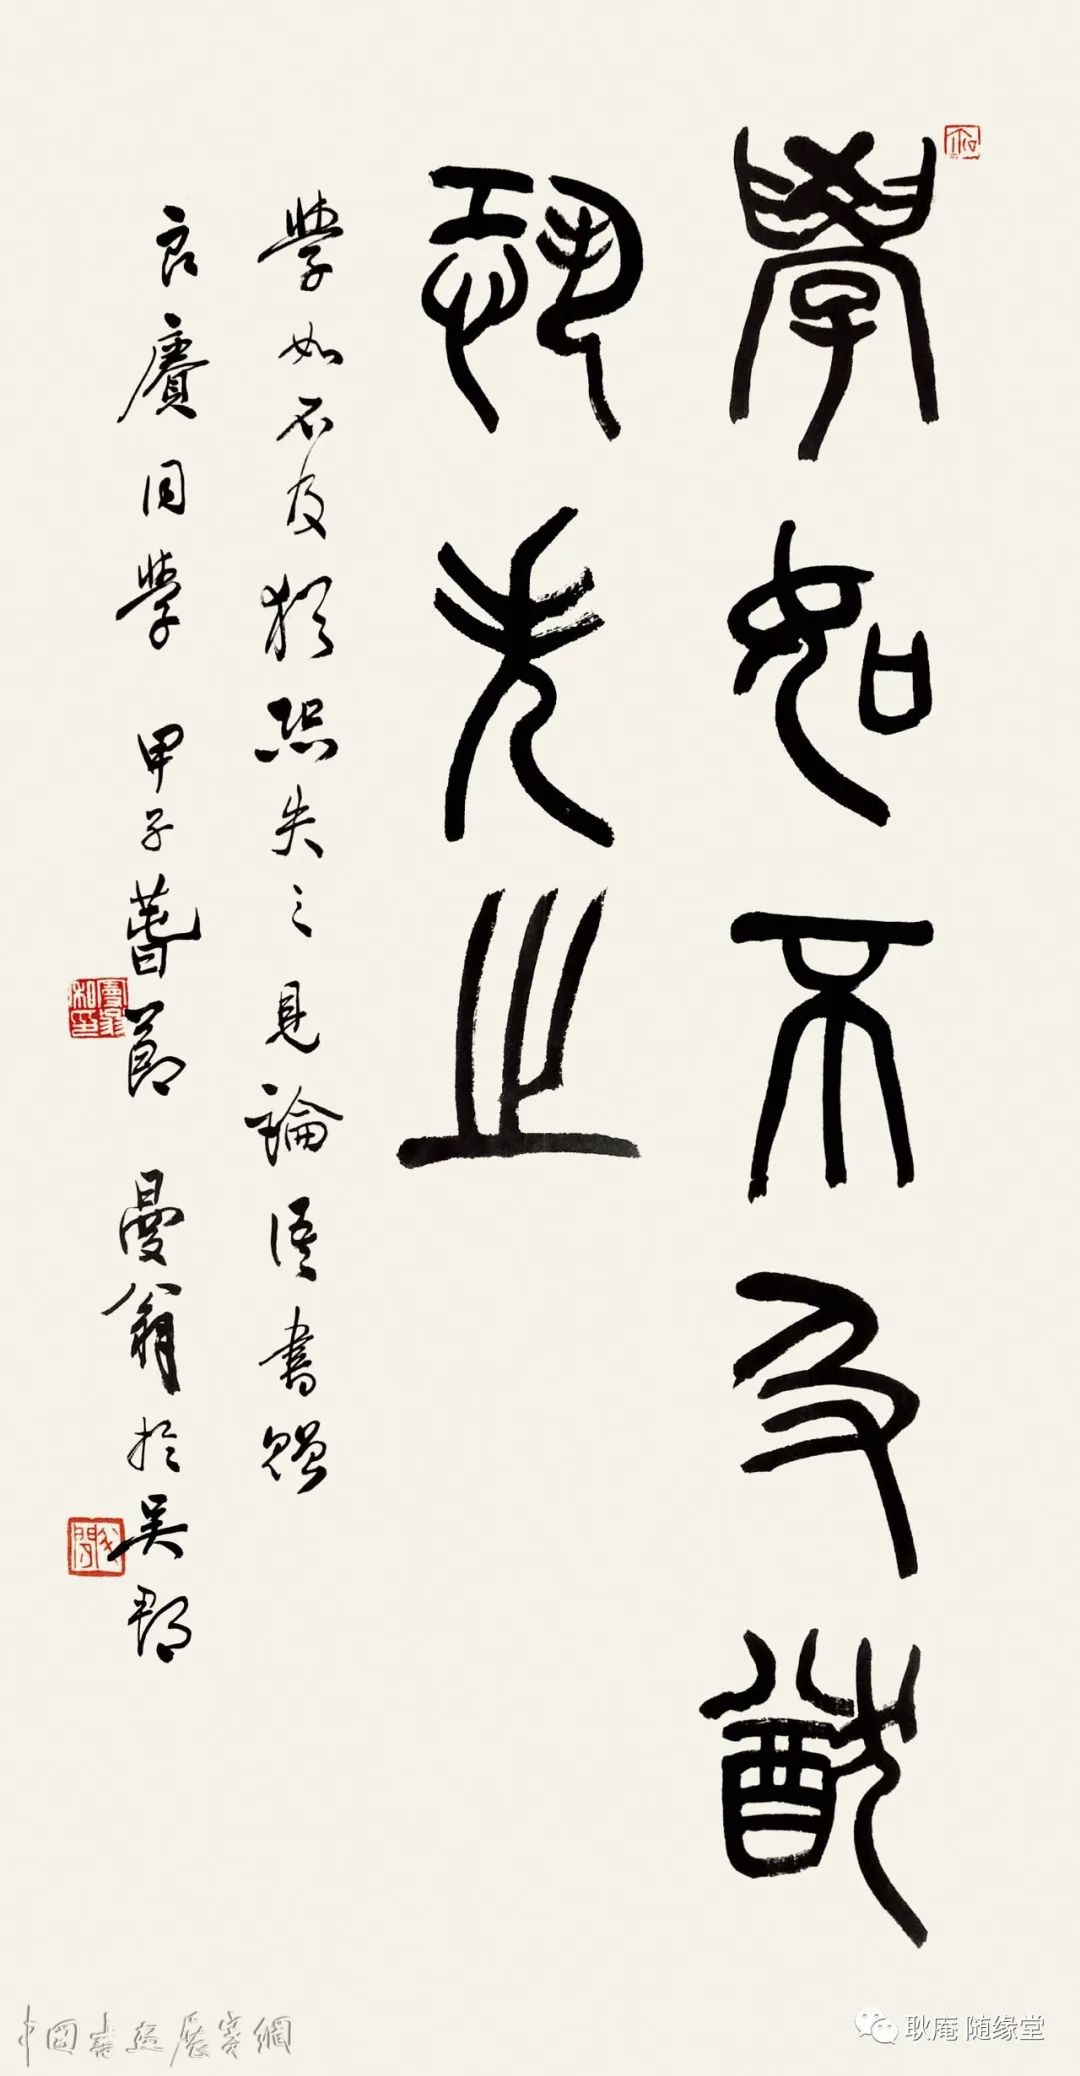 學如不及猶
恐失之
學如不及猶恐失之見論語書貽
良賡同學 甲子春節 曼翁於吳郡
中國書畫展賽網
耿庵 随缘堂